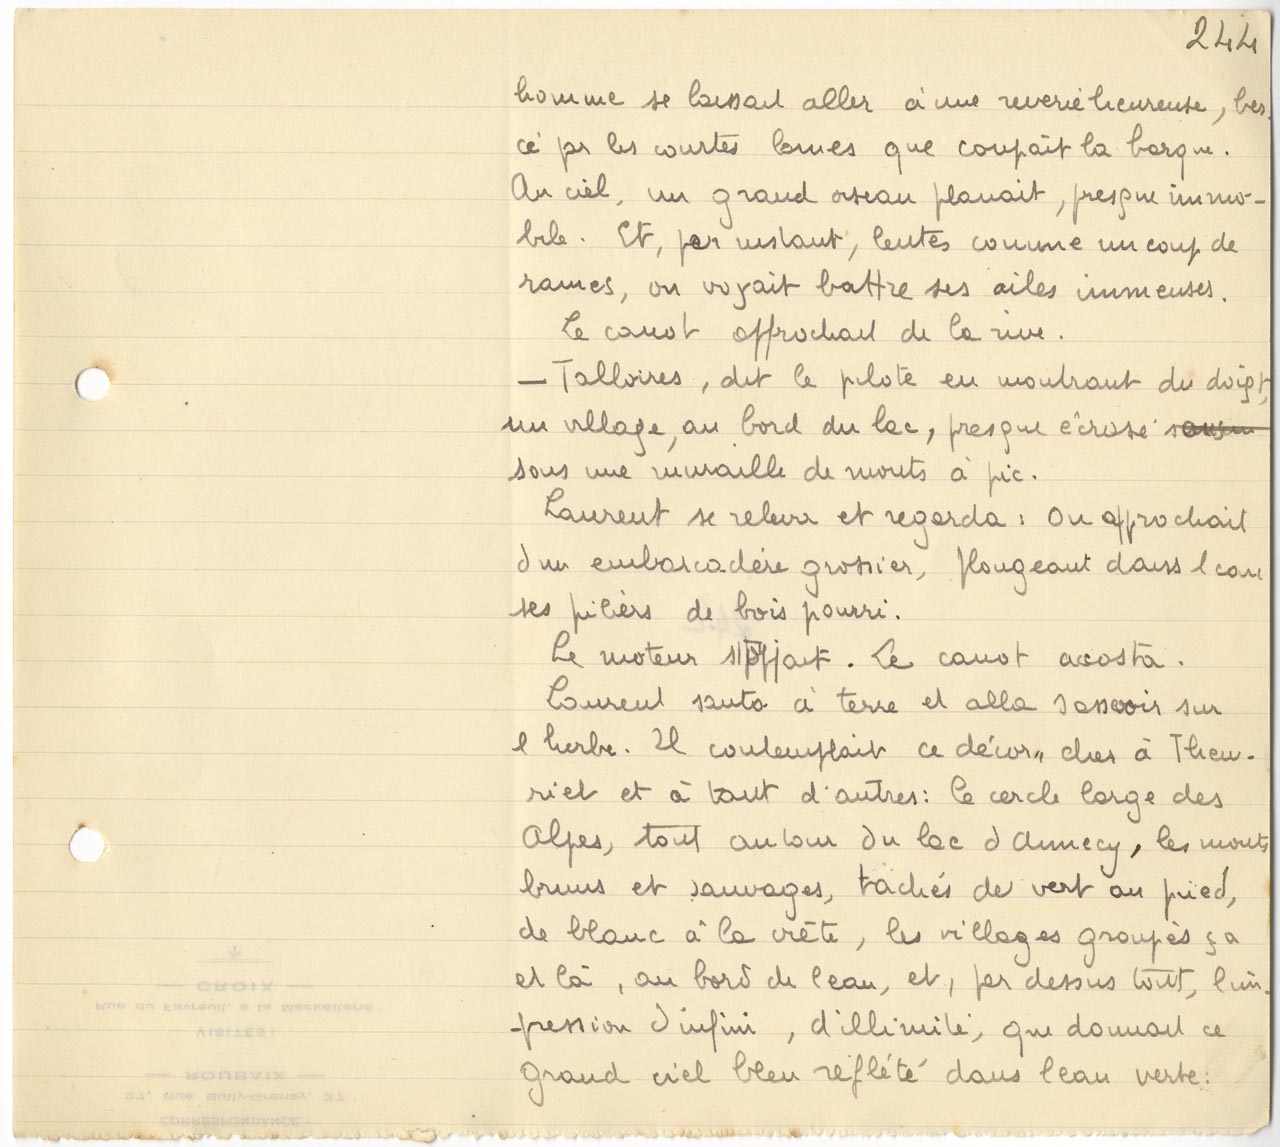 244
homme se laissait aller à une reverie heureuse, ber-
cé par les courtes lames que coupait la barque.
Au ciel, un grand oiseau planait, presque immo-
bile. Et, par instant, lentes comme un coup de
rames, on voyait battre ses ailes immenses.
Le canot approchait de la rive.
— Talloires, dit le pilote en montrant du doigt,
un village, au bord du lac, presque écrasé
sous une muraille de monts à pic.
Laurent se releva et regarda : On approchait
d'un embarcadère grossier, plongeant dans l'eau
ses piliers de bois pourri.
Le moteur stoppait. Le canot accosta.
Laurent sauta à terre et alla s'asseoir sur
l'herbe. Il contemplait ce décor, cher à Theu-
riet et à tant d'autres : le cercle large des
Alpes, tout autour du lac d'Annecy, les monts
bruns et sauvages, tachés de vert au pied,
de blanc à la crête, les villages groupés ça
et là, au bord de l'eau, et, par dessus tout, l'im-
-pression d'infini, d'illimité, que donnait ce
grand ciel bleu reflété dans l'eau verte.
CROIX
Rue du Favreuil, à la Mackellerie
VISITES :
ROUBAIX
27, Rue Bully-Grenay, 27
CORRESPONDANCE :